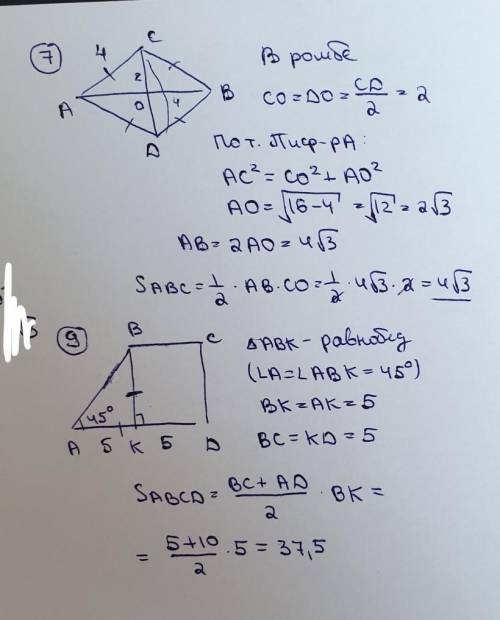 7
C
4
2
A
O
4
B
D
В ромбе
CO = DO = CD/2 = 2
По т. Пифр-ра:
AC² = CO² + AO²
AO = √16-4 = √12 = 2√3
AB = 2AO = 4√3
SABC = 1/2 · AB · CO = 1/2 · 4√3 · 2 = 4√3
9
B
C
45°
A 5 K 5 D
ΔABK - равнобед
(∠A = ∠ABK = 45°)
BK = AK = 5
BC = KD = 5
SABCD = BC + AD/2 · BK =
= 5+10/2 · 5 = 37,5